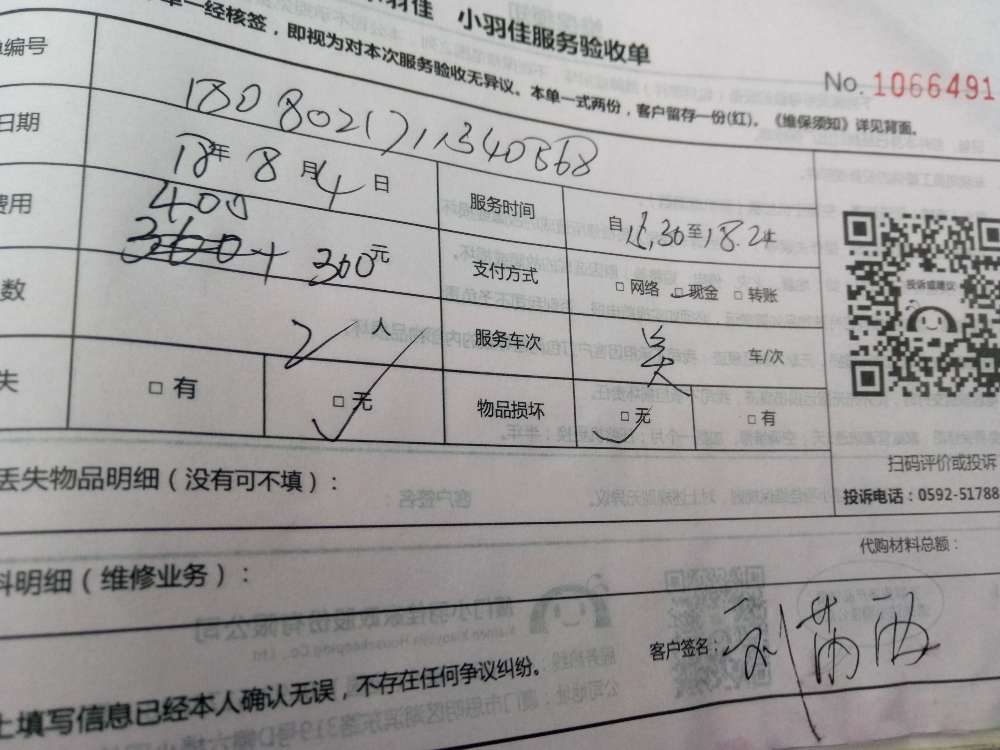 小羽佳 小羽佳服务验收单
单一经核签，即视为对本次服务验收无异议。本单一式两份，客户留存一份(红)。《维保须知》详见背面。
No.1066491
单编号 1808021711340568
日期 18年8月4日 服务时间 自16.30至18.2
费用 400 360+300元 支付方式 □网络 □现金 □转账
数 2人 服务车次 车/次
失 □有 □无 物品损坏 □无 □有
投诉或建议
扫码评价或投诉
投诉电话：0592-51788
丢失物品明细（没有可不填）：
代购材料总额：
料明细（维修业务）：
客户签名：刘
上填写信息已经本人确认无误，不存在任何争议纠纷。